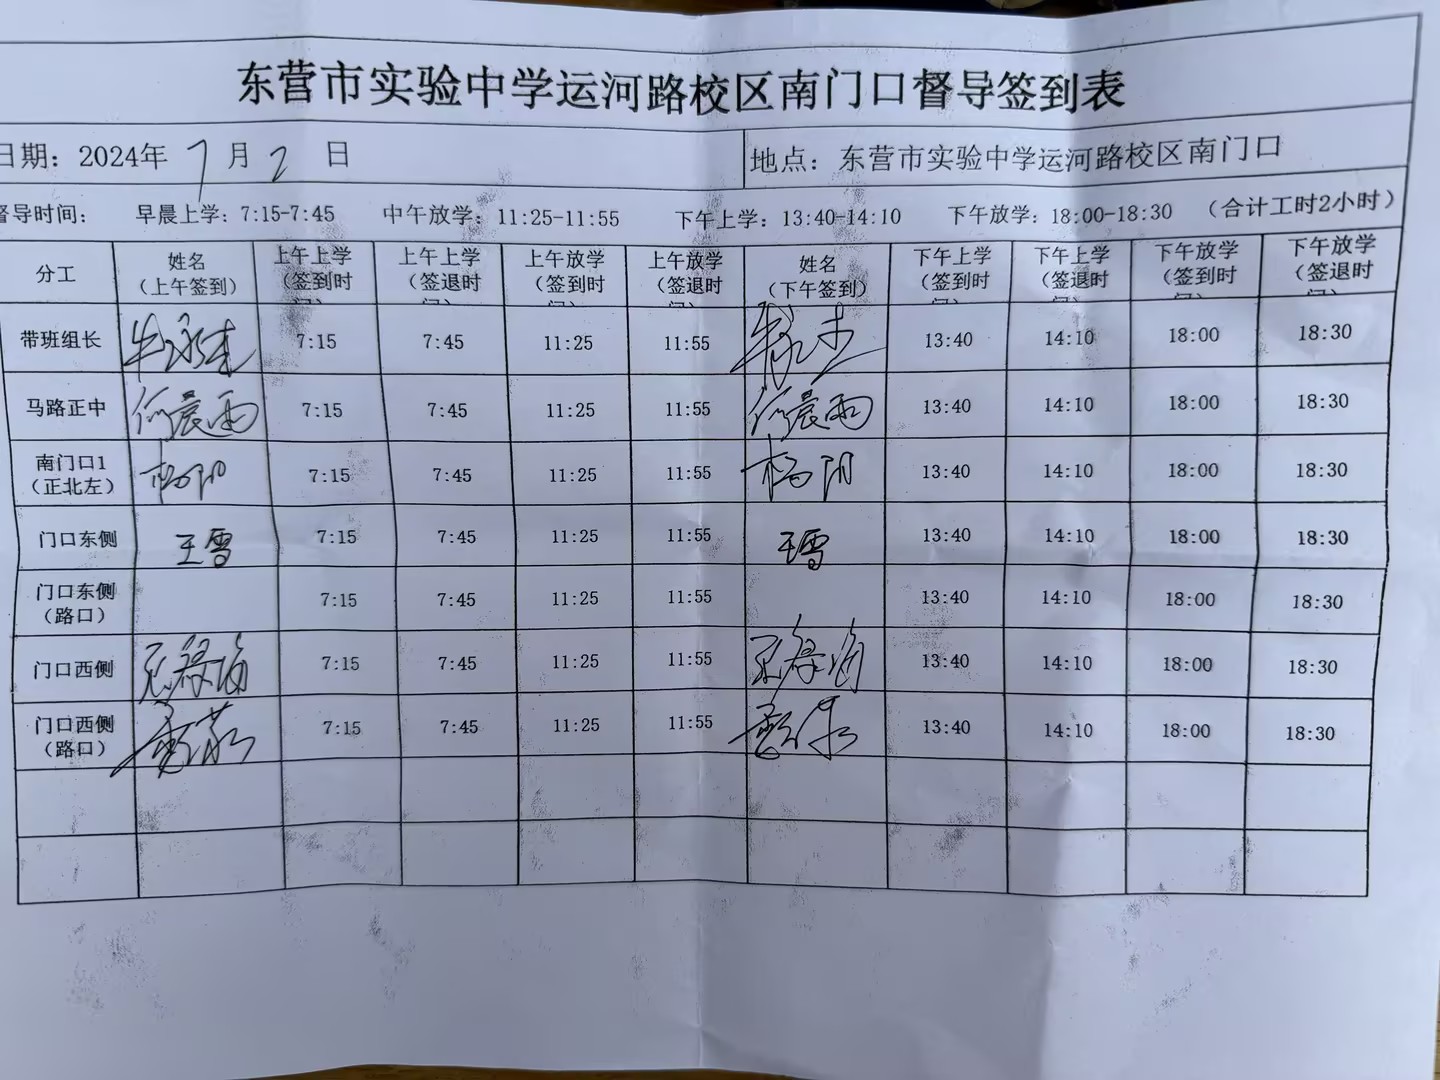 东营市实验中学运河路校区南门口督导签到表
日期：2024年 7 月 2 日 地点：东营市实验中学运河路校区南门口
督导时间： 早晨上学：7:15-7:45 中午放学：11:25-11:55 下午上学：13:40-14:10 下午放学：18:00-18:30 （合计工时2小时）
分工 姓名（上午签到） 上午上学（签到时间） 上午上学（签退时间） 上午放学（签到时间） 上午放学（签退时间） 姓名（下午签到） 下午上学（签到时间） 下午上学（签退时间） 下午放学（签到时间） 下午放学（签退时间）
带班组长 7:15 7:45 11:25 11:55 13:40 14:10 18:00 18:30
马路正中 何晨雨 7:15 7:45 11:25 11:55 何晨雨 13:40 14:10 18:00 18:30
南门口1（正北左） 杨阳 7:15 7:45 11:25 11:55 杨阳 13:40 14:10 18:00 18:30
门口东侧 王雪 7:15 7:45 11:25 11:55 王雪 13:40 14:10 18:00 18:30
门口东侧（路口） 7:15 7:45 11:25 11:55 13:40 14:10 18:00 18:30
门口西侧 7:15 7:45 11:25 11:55 13:40 14:10 18:00 18:30
门口西侧（路口） 7:15 7:45 11:25 11:55 13:40 14:10 18:00 18:30